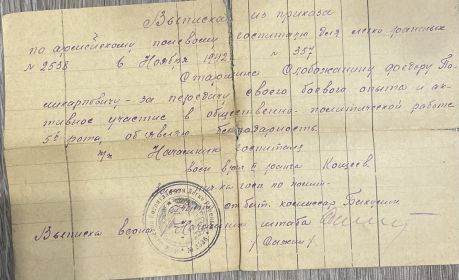 Выписка из приказа
по армейскому полевому госпиталю для легко раненых
№ 2538 8 Ноября 1942 № 357
Старшине Слобожанину Федору По-
ликарповичу - за передачу своего боевого опыта и ак-
тивное участие в общественно-политической работе
5й рота, объявляю благодарность.
п/п Начальник госпиталя
воен врач II ранга Кощеев
госп по полит.
ст. бат. комиссар
Выписка верна: Начальник штаба